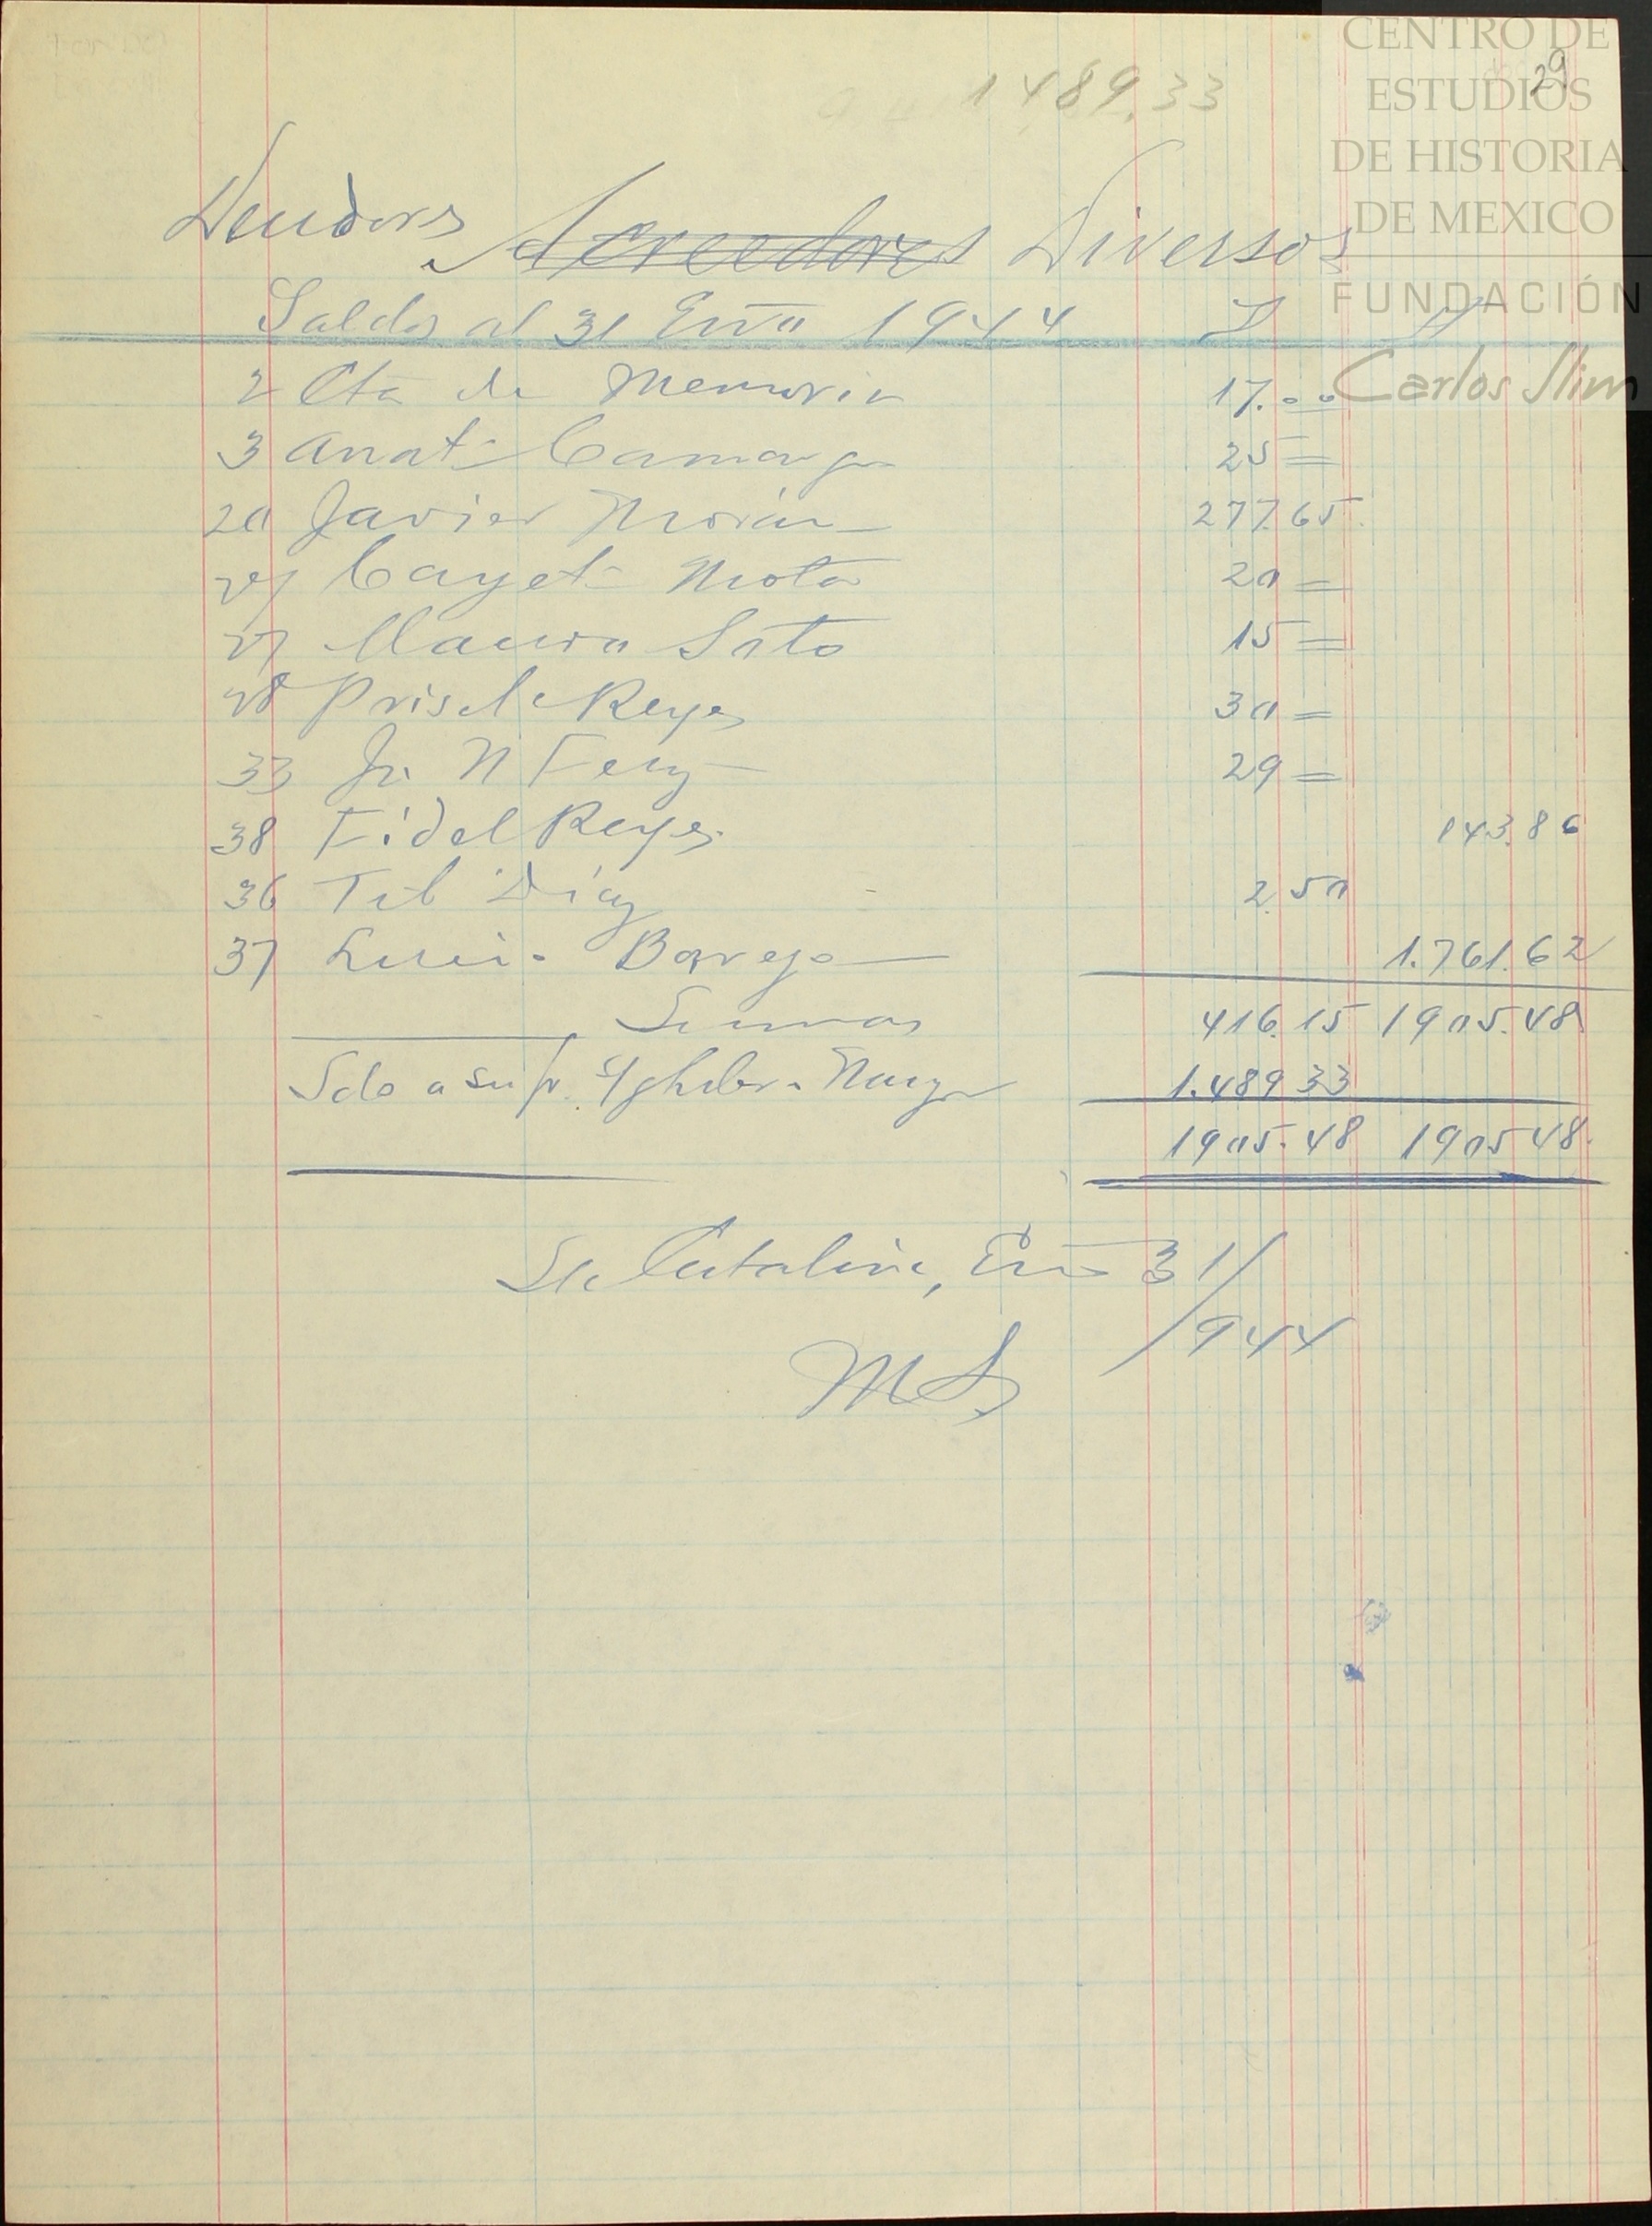 CENTRO DE
ESTUDIOS
DE HISTORIA
DE MEXICO
FUNDACIÓN
Carlos Slim
29
1489.33
Deudores Acreedores Diversos
Saldos al 31 Enro 1944
2 Cta de Memoria 17.00
3 Anat. Camarg 25=
20 Javier Morán 277.65
Cayet. Mota 20=
27 Mauro Soto 15=
28 Prisc Reyes 30=
33 J. N Ferz 29=
38 Fidel Reyes 143.86
36 Tel Díaz 2.50
37 Luis Barega 1.761.62
Sumas 416.15 1905.48
Sdo a su f. 1.489 33
1905.48 1905 48
Sta Catalina, Enro 31/
/944
MS